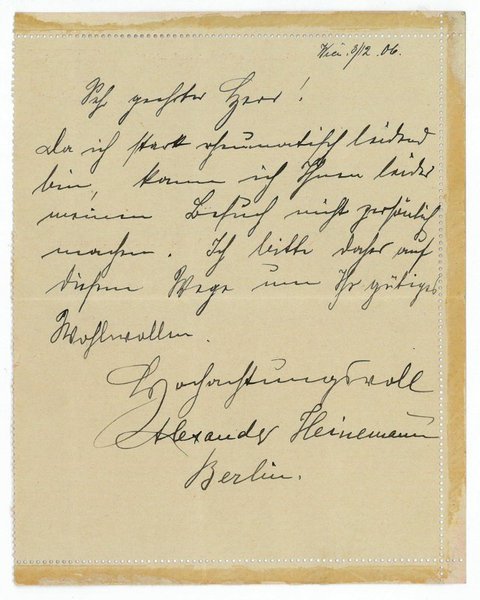 Wien. 3/12. 06.
Sehr geehrter Herr!
Da ich stark rheumatisch leidend
bin, kann ich Ihnen leider
meinen Besuch nicht persönlich
machen. Ich bitte daher auf
diesem Wege um Ihr gütiges
Wohlwollen.
Hochachtungsvoll
Alexander Heinemann
Berlin.